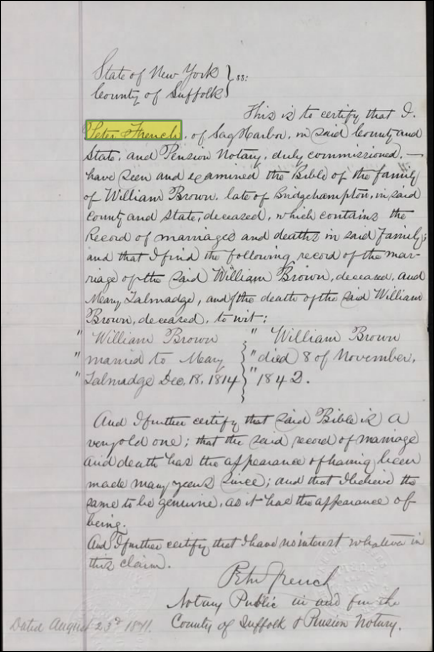 State of New York
County of Suffolk } ss:
This is to certify that I,
Peter French, of Sag Harbor, in said County and
State, and Pension Notary, duly commissioned, —
have seen and examined the Bible of the family
of William Brown, late of Bridgehampton, in said
County and State, deceased, which contains the
Record of marriages and deaths in said family;
and that I find the following record of the mar-
riage of the said William Brown, deceased, and
Mary Talmadge, and of the death of the said William
Brown, deceased, to wit:
" William Brown
" married to Mary
" Talmadge Dec. 18, 1814
" William Brown
" died 8 of November,
" 1842.
And I further certify that said Bible is a
very old one; that the said record of marriage
and death has the appearance of having been
made many years since; and that I believe the
same to be genuine, as it has the appearance of
being.
And I further certify that I have no interest whatever in
this claim.
Peter French
Notary Public in and for the
County of Suffolk & Pension Notary.
Dated August 23d